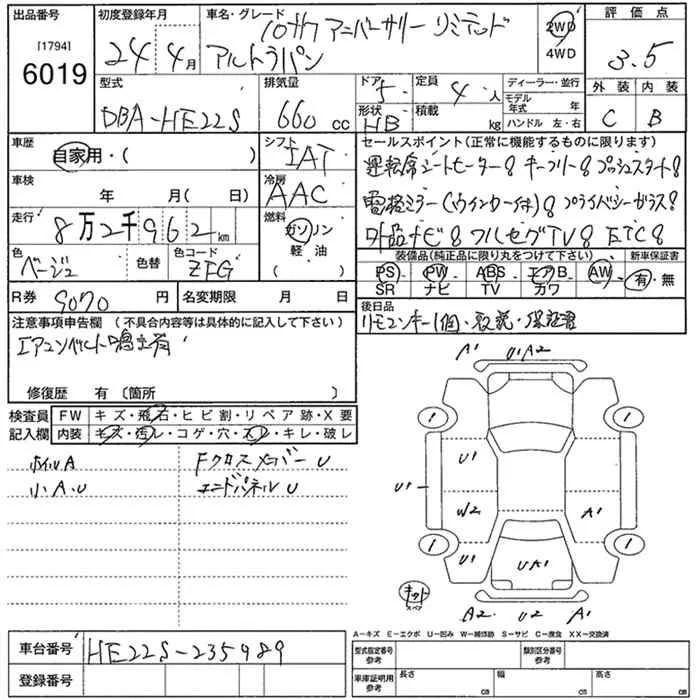 出品番号
[1794]
6019
初度登録年月
24年4月
車名・グレード
10thアニバーサリーリミテッド
アルトラパン
2WD
4WD
評価点
3.5
外装 内装
C B
型式
DBA-HE22S
排気量
660 cc
ドア 5
形状 HB
定員 4人
積載 kg
ディーラー・並行
モデル年式 年
ハンドル 左・右
車歴
自家用・( )
シフト
IAT
車検
年 月( 日)
冷房
AAC
走行
8万2千962km
燃料
ガソリン
軽油
( )
色
ベージュ
色替
色コード
ZFG
R券 9070円
名変期限 月 日
セールスポイント(正常に機能するものに限ります)
運転席シートヒーター。キーフリー。プッシュスタート。
電格ミラー(ウインカー付)。プライバシーガラス。
社外品ナビ。フルセグTV。ETC。
装備品(純正品に限り丸をつけて下さい)
PS PW ABS エアB AW
SR ナビ TV カワ
新車保証書
有・無
後日品
リモコンキー1個、取説・保証書
注意事項申告欄 (不具合内容等は具体的に記入して下さい)
エアコンベルト鳴き有
修復歴 有(箇所 )
検査員記入欄
FW キズ・飛石・ヒビ割・リペア跡・X要
内装 キズ・汚レ・コゲ・穴・スレ・キレ・破レ
ホイルA
小A.U
Fクロスメンバー U
エンドパネル U
A1
U1A2
1
1
U1
U1
W2
A1
1
U1
UA1
1
キット
スペア
A2
U2
A1
A-キズ E-エクボ U-凹み W-補修跡 S-サビ C-腐食 XX-交換済
車台番号
HE22S-235989
登録番号
型式指定番号 参考
類別区分番号 参考
車庫証明用 参考
長さ cm
幅 cm
高さ cm